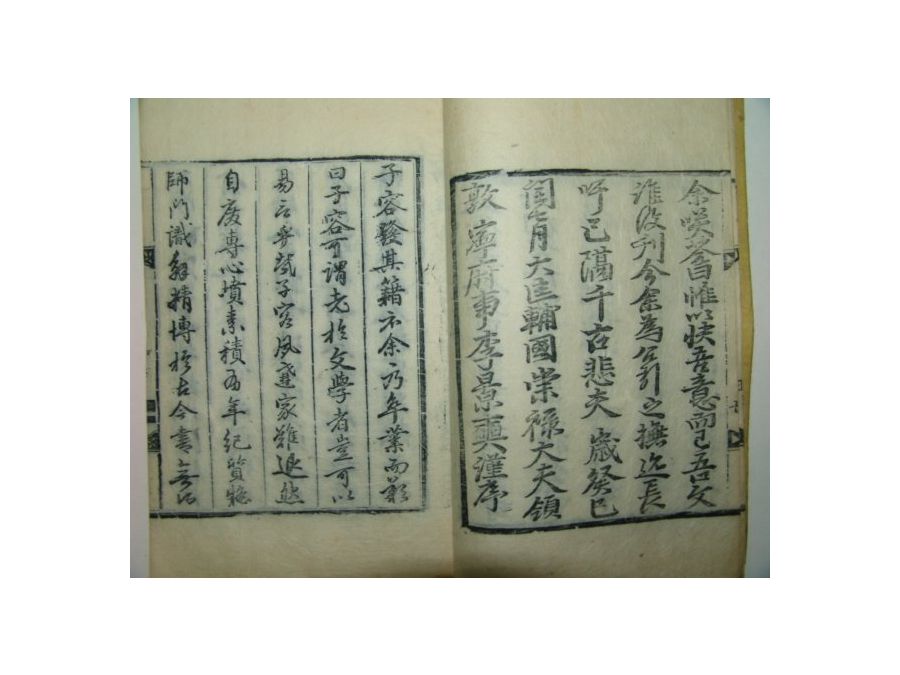 余笑答曰惟以快吾意而已吾文
誰役刊今余爲公引之撫迹長
吁已隔千古悲夫 歲癸巳
閏七月大匡輔國崇祿大夫領
敦寧府事李景奭謹序
子容發其籍示余乃卒業而歎
曰子容可謂老於文學者豈可以
易言乎哉子容夙遭家難退然
自廢專心墳素積有年紀質疑
師門識解精博於古今書無不